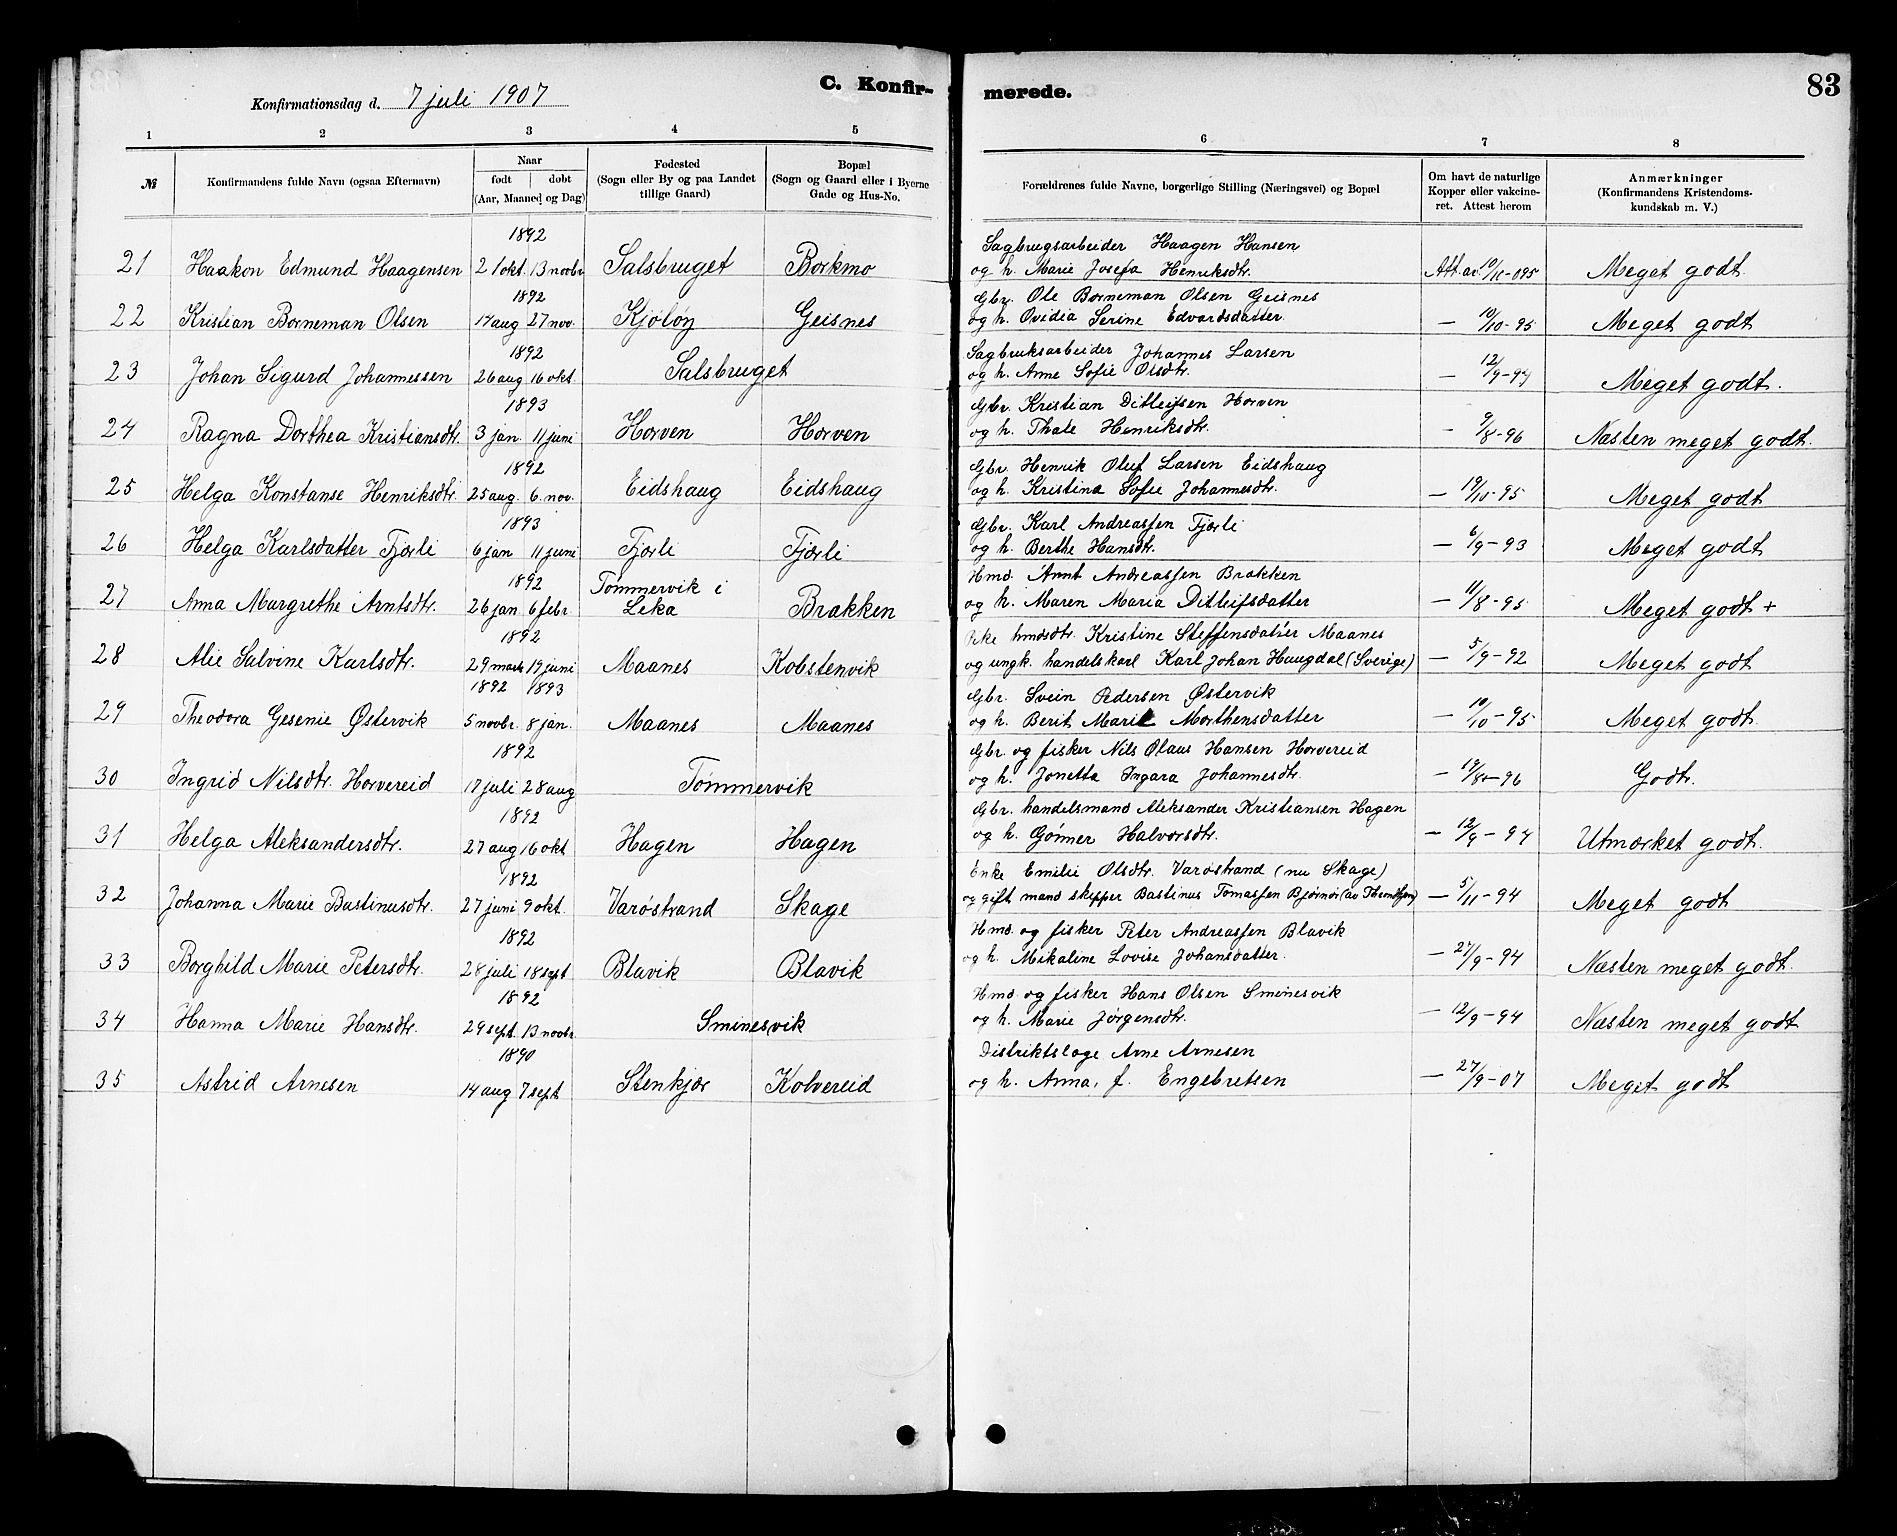 83
C. Konfir- merede.
Konfirmationsdag d. 7 juli 1907
1 2 3 4 5 6 7 8
№ Konfirmandens fulde Navn (ogsaa Efternavn)
Naar
født døbt
(Aar, Maaned og Dag)
Fødested
(Sogn eller By og paa Landet
tillige Gaard)
Bopæl
(Sogn og Gaard eller i Byerne
Gade og Hus-No.
Forældrenes fulde Navne, borgerlige Stilling (Næringsvei) og Bopæl
Om havt de naturlige
Kopper eller vakcine-
ret. Attest herom
Anmærkninger
(Konfirmandens Kristendoms-
kundskab m. V.)
1892 Sagbrugsarbeider Haagen Hansen
21 Haakon Edmund Haagensen 21 okt. 13 novbr Salsbruget Borkmo og h. Marie Josefa Henriksdtr. Att. av 10/10-095 Meget godt.
1892 Gbr. Ole Borneman Olsen Geisnes
22 Kristian Borneman Olsen 14 aug 27 nov. Kjøløy Geisnes og h. Ovidia Serine Edvardsdatter. — 10/10-95 Meget godt
1892 Sagbruksarbeider Johannes Larsen
23 Johan Sigurd Johannessen 26 aug 16 okt. Salsbruget og h. Anne Sofie Olsdtr. — 12/9-94 Meget godt.
1893 Gbr. Kristian Ditleifsen Horven
24 Ragna Dorthea Kristiansdtr. 3 jan. 11 juni Horven Horven og h. Thale Henriksdtr. — 9/8-96 Næsten meget godt.
1892 Gbr. Henrik Oluf Larsen Eidshaug
25 Helga Konstanse Henriksdtr. 25 aug. 6 nov. Eidshaug Eidshaug og h. Kristina Sofie Johannesdtr. — 19/10-95 Meget godt
1893 Gbr. Karl Andreassen Fjærli
26 Helga Karlsdatter Fjærli 6 jan 11 juni Fjærli Fjærli og h. Berthe Hansdtr. — 6/9-93 Meget godt
1892 Tømmervik i Hmd. Arnt Andreassen Brakken
27 Anna Margrethe Arntsdtr. 26 jan. 6 febr Leka Brakken og h. Maren Maria Ditleifsdatter — 11/8-95 Meget godt +
1892 Pike hmdsdtr. Kristine Steffensdatter Maanes
28 Alie Salvine Karlsdtr. 29 marts 19 juni Maanes Kobstenvik og ungk. handelskarl Karl Johan Haugdal (Sverige) — 5/9-92 Meget godt
1892 1893 Gbr. Svein Pedersen Østervik
29 Theodora Gesenie Østervik 5 novbr. 8 jan. Maanes Maanes og h. Berit Marie Morthensdatter — 10/10-95 Meget godt.
1892 Gbr. og fisker Nils Olaus Hansen Horvereid
30 Ingrid Nilsdtr. Horvereid 17 juli 28 aug Tømmervik og h. Jonetta Ingara Johannesdtr. — 19/8-96 Godt.
1892 Gbr. handelsmand Aleksander Kristiansen Hagen
31 Helga Aleksandersdtr. 27 aug 16 okt Hagen Hagen og h. Gønner Halvorsdtr. — 12/9-94 Utmærket godt.
1892 Enke Emilie Olsdtr. Varøstrand (nu Skage)
32 Johanna Marie Bastinusdtr. 27 juni 9 okt. Varøstrand Skage og gift mand skipper Bastinus Tomassen Bjørnør (av Thondhjem) — 5/11-94 Meget godt
1892 Hmd. og fisker Peter Andreassen Blavik
33 Borghild Marie Petersdtr. 28 juli 18 sept Blavik Blavik og h. Mikaline Lovise Johansdatter. — 27/9-94 Næsten meget godt.
1892 Hmd. og fisker Hans Olsen Sminesvik
34 Hanna Marie Hansdtr. 29 sept. 13 novbr. Sminesvik og h. Marie Jørgensdtr. — 12/9-94 Næsten meget godt
1890 Distriktslæge Arne Arnesen
35 Astrid Arnesen 14 aug 7 sept Stenkjær Kolvereid og h. Anna, f. Engebretsen — 27/9-07 Meget godt